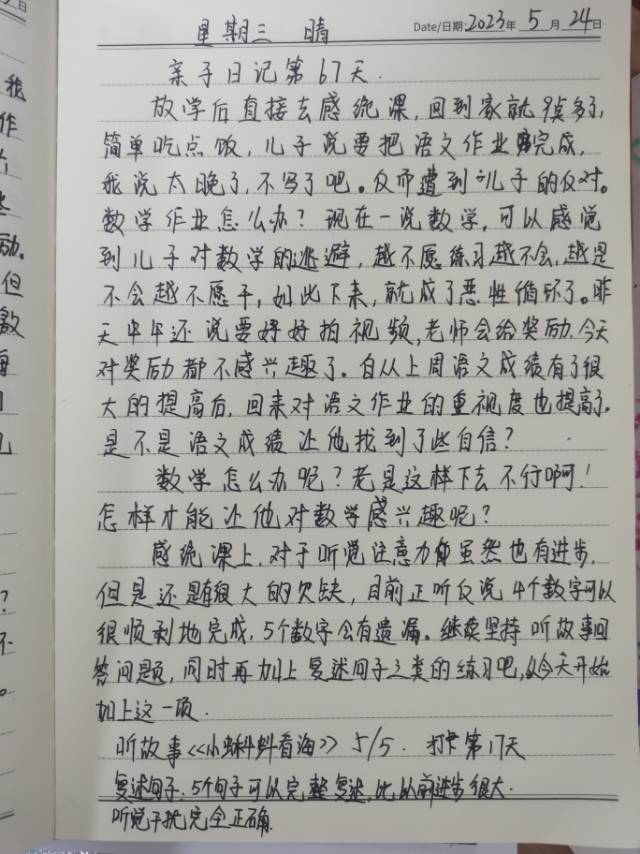 星期三 晴 Date/日期: 2023年 5月 24日
亲子日记第67天.
放学后直接去感统课,回到家就9点多了,
简单吃点饭,儿子说要把语文作业完成,
我说太晚了,不写了吧。反而遭到儿子的反对。
数学作业怎么办?现在一说数学,可以感觉
到儿子对数学的逃避,越不愿练习越不会,越是
不会越不愿干,如此下来,就成了恶性循环了。昨
天中午还说要好好拍视频,老师会给奖励.今天
对奖励都不感兴趣了.自从上周语文成绩有了很
大的提高后,回来对语文作业的重视度也提高了.
是不是语文成绩让他找到了些自信?
数学怎么办呢?老是这样下去不行啊!
怎样才能让他对数学感兴趣呢?
感统课上,对于听觉注意力虽然也有进步,
但是还是有很大的欠缺,目前正听反说4个数字可以
很顺利地完成,5个数字会有遗漏。继续坚持听故事回
答问题,同时再加上复述句子之类的练习吧,从今天开始
加上这一项.
听故事《小蝌蚪看海》5/5. 打卡第17天
复述句子:5个句子可以完整复述,比以前进步很大.
听觉干扰完全正确.
我
作
励.
但
激
每
?
不
。